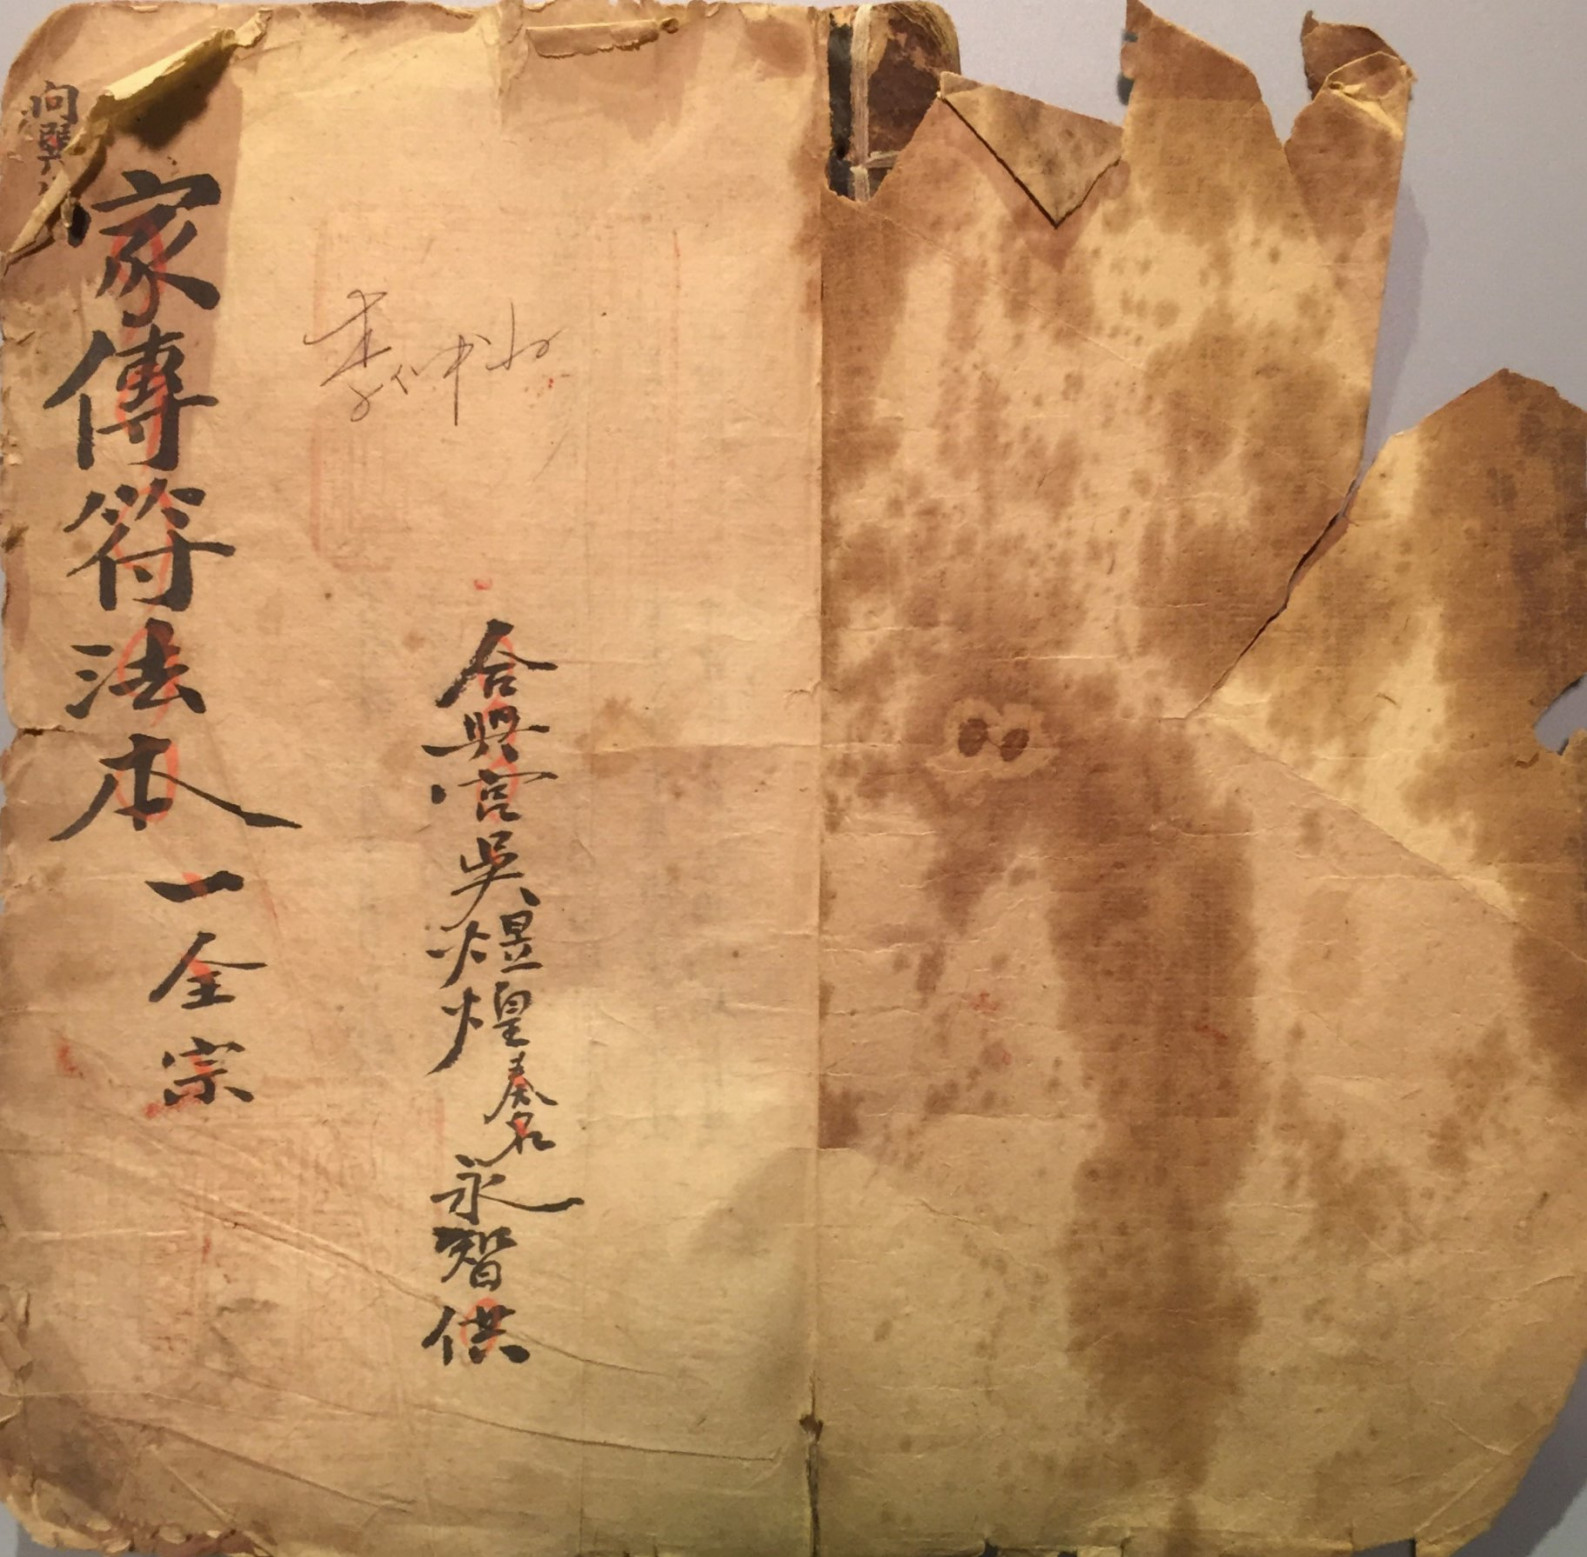 合興宮吳煜煌奏名永智供
李仲
家傳符法本一全宗
向巽